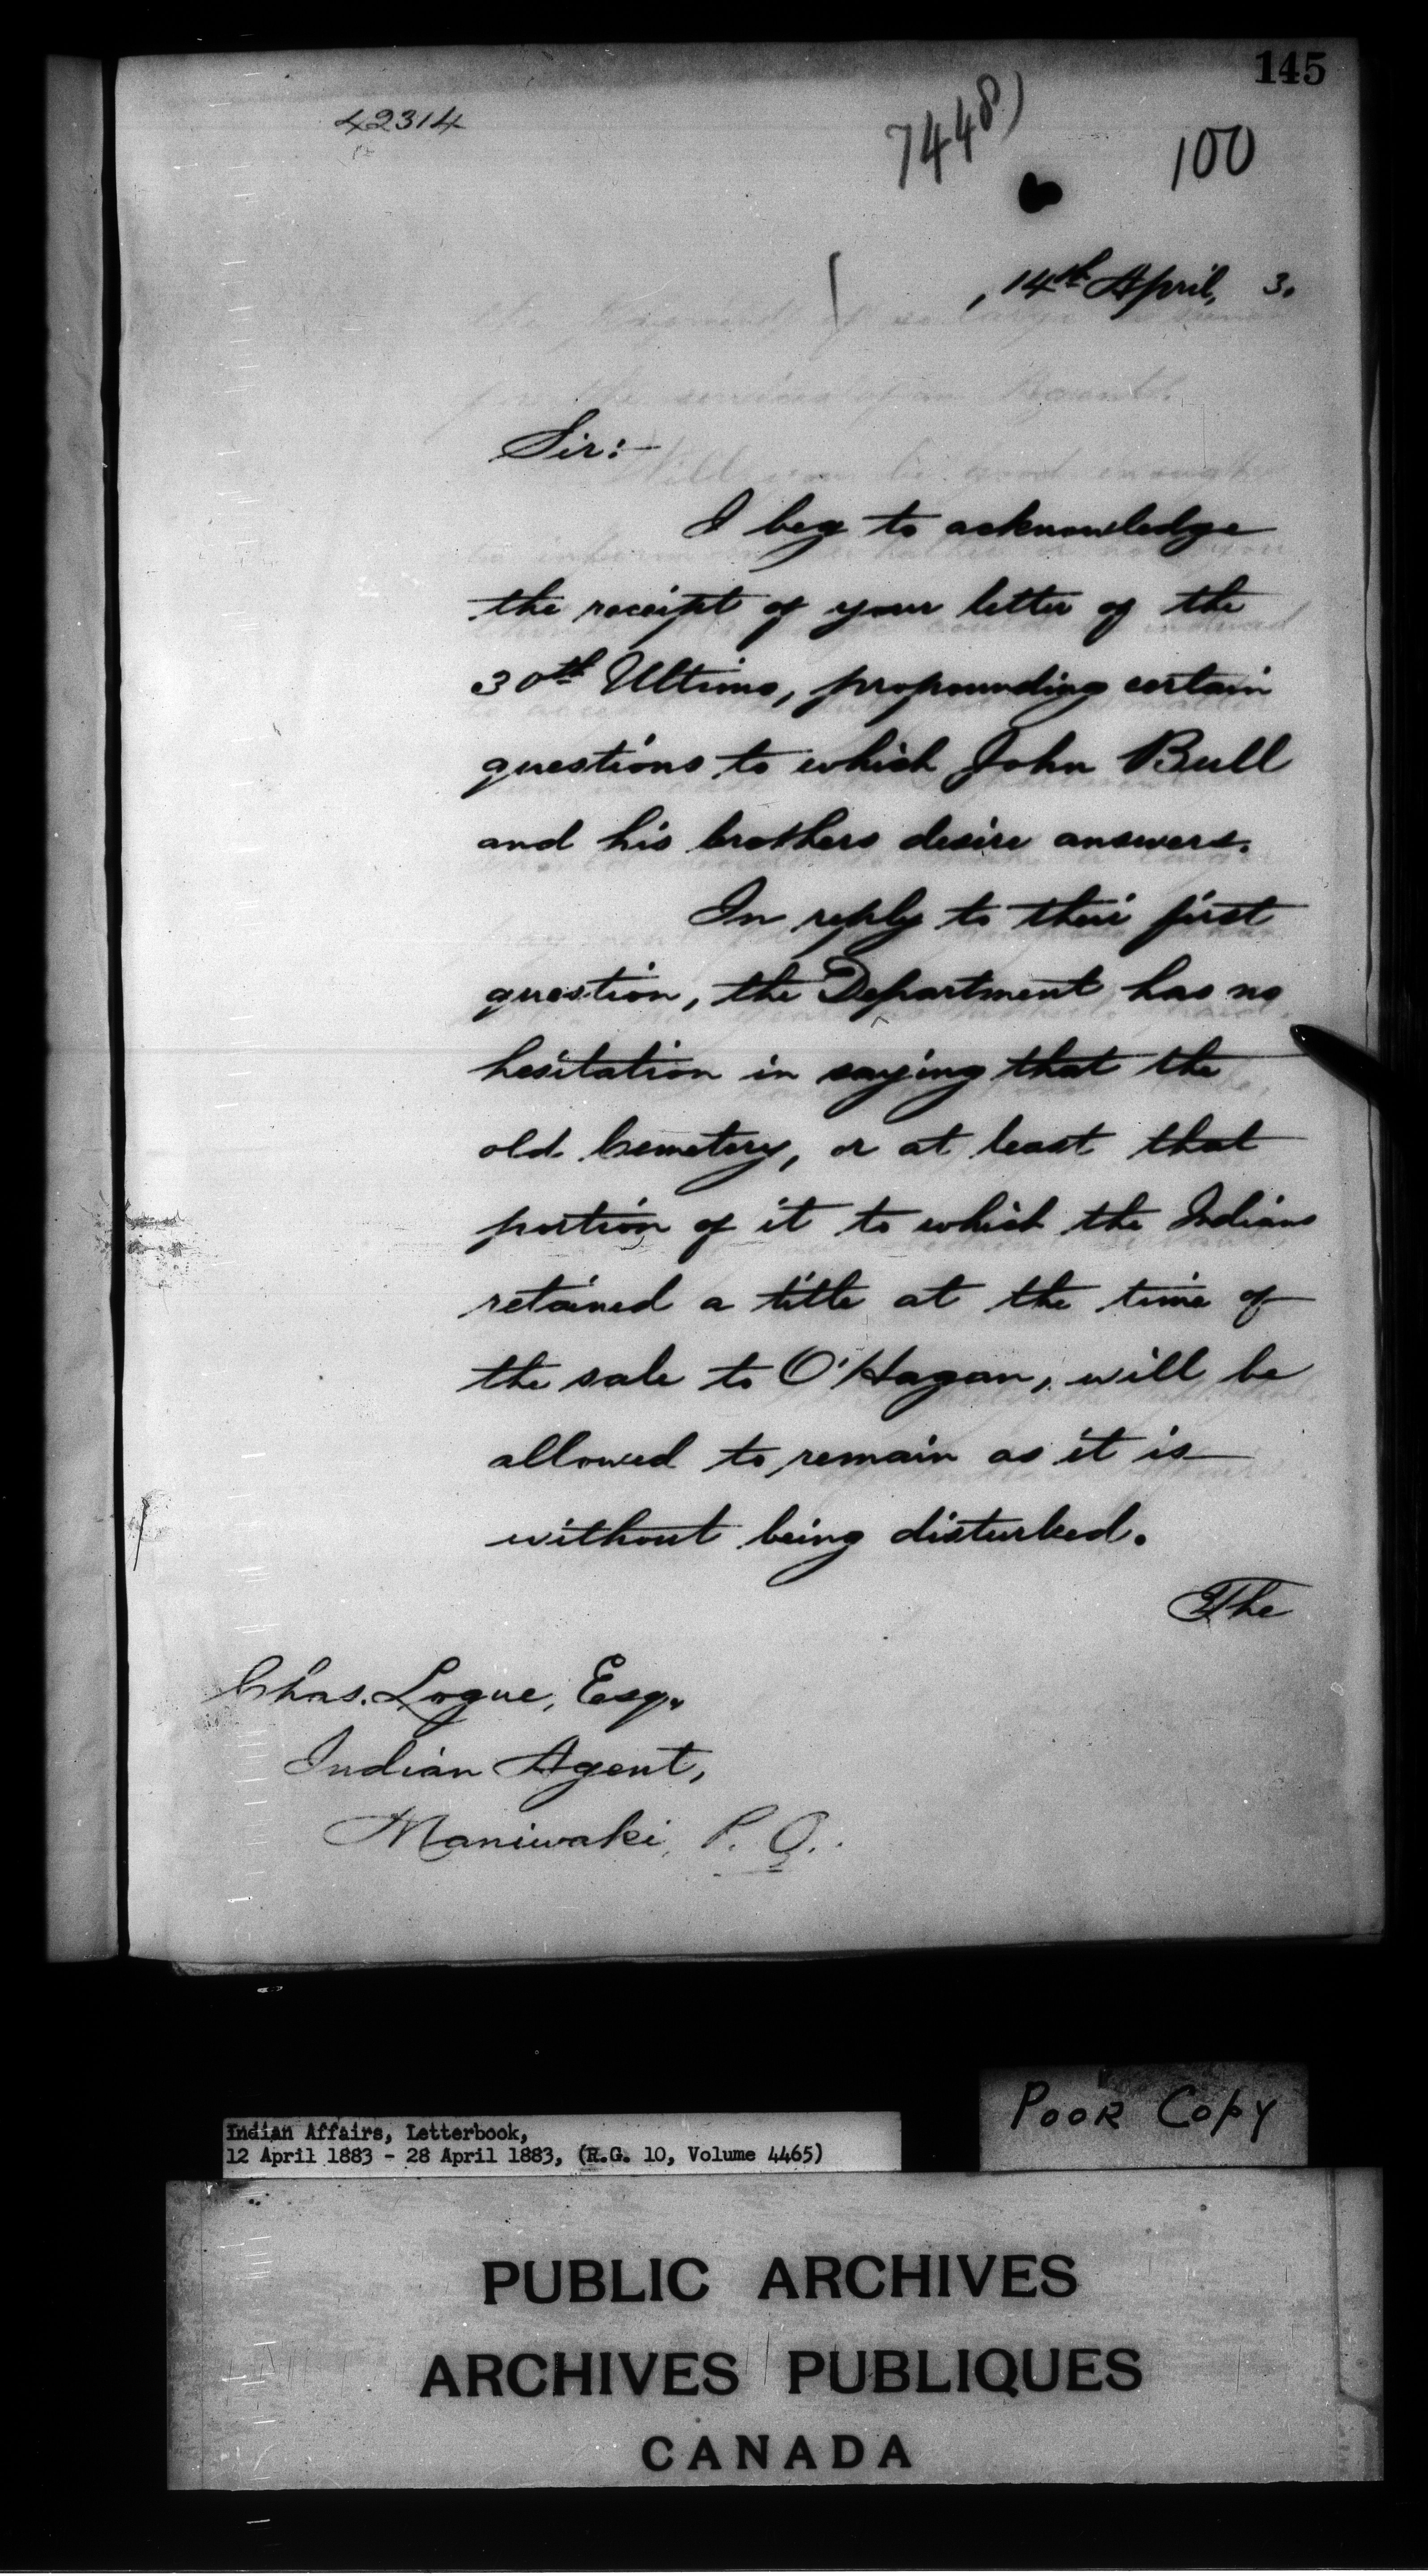 145
42314
7448)
100
, 14th April, 3.
Sir:-
I beg to acknowledge
the receipt of your letter of the
30th Ultimo, propounding certain
questions to which John Bull
and his brothers desire answers.
In reply to their first
question, the Department has no
hesitation in saying that the
old Cemetery, or at least that
portion of it to which the Indians
retained a title at the time of
the sale to O'Hagan, will be
allowed to remain as it is
without being disturbed.
The
Chas. Logue, Esq.,
Indian Agent,
Maniwaki, P. Q.
Poor Copy
Indian Affairs, Letterbook,
12 April 1883 - 28 April 1883, (R.G. 10, Volume 4465)
PUBLIC ARCHIVES
ARCHIVES PUBLIQUES
CANADA